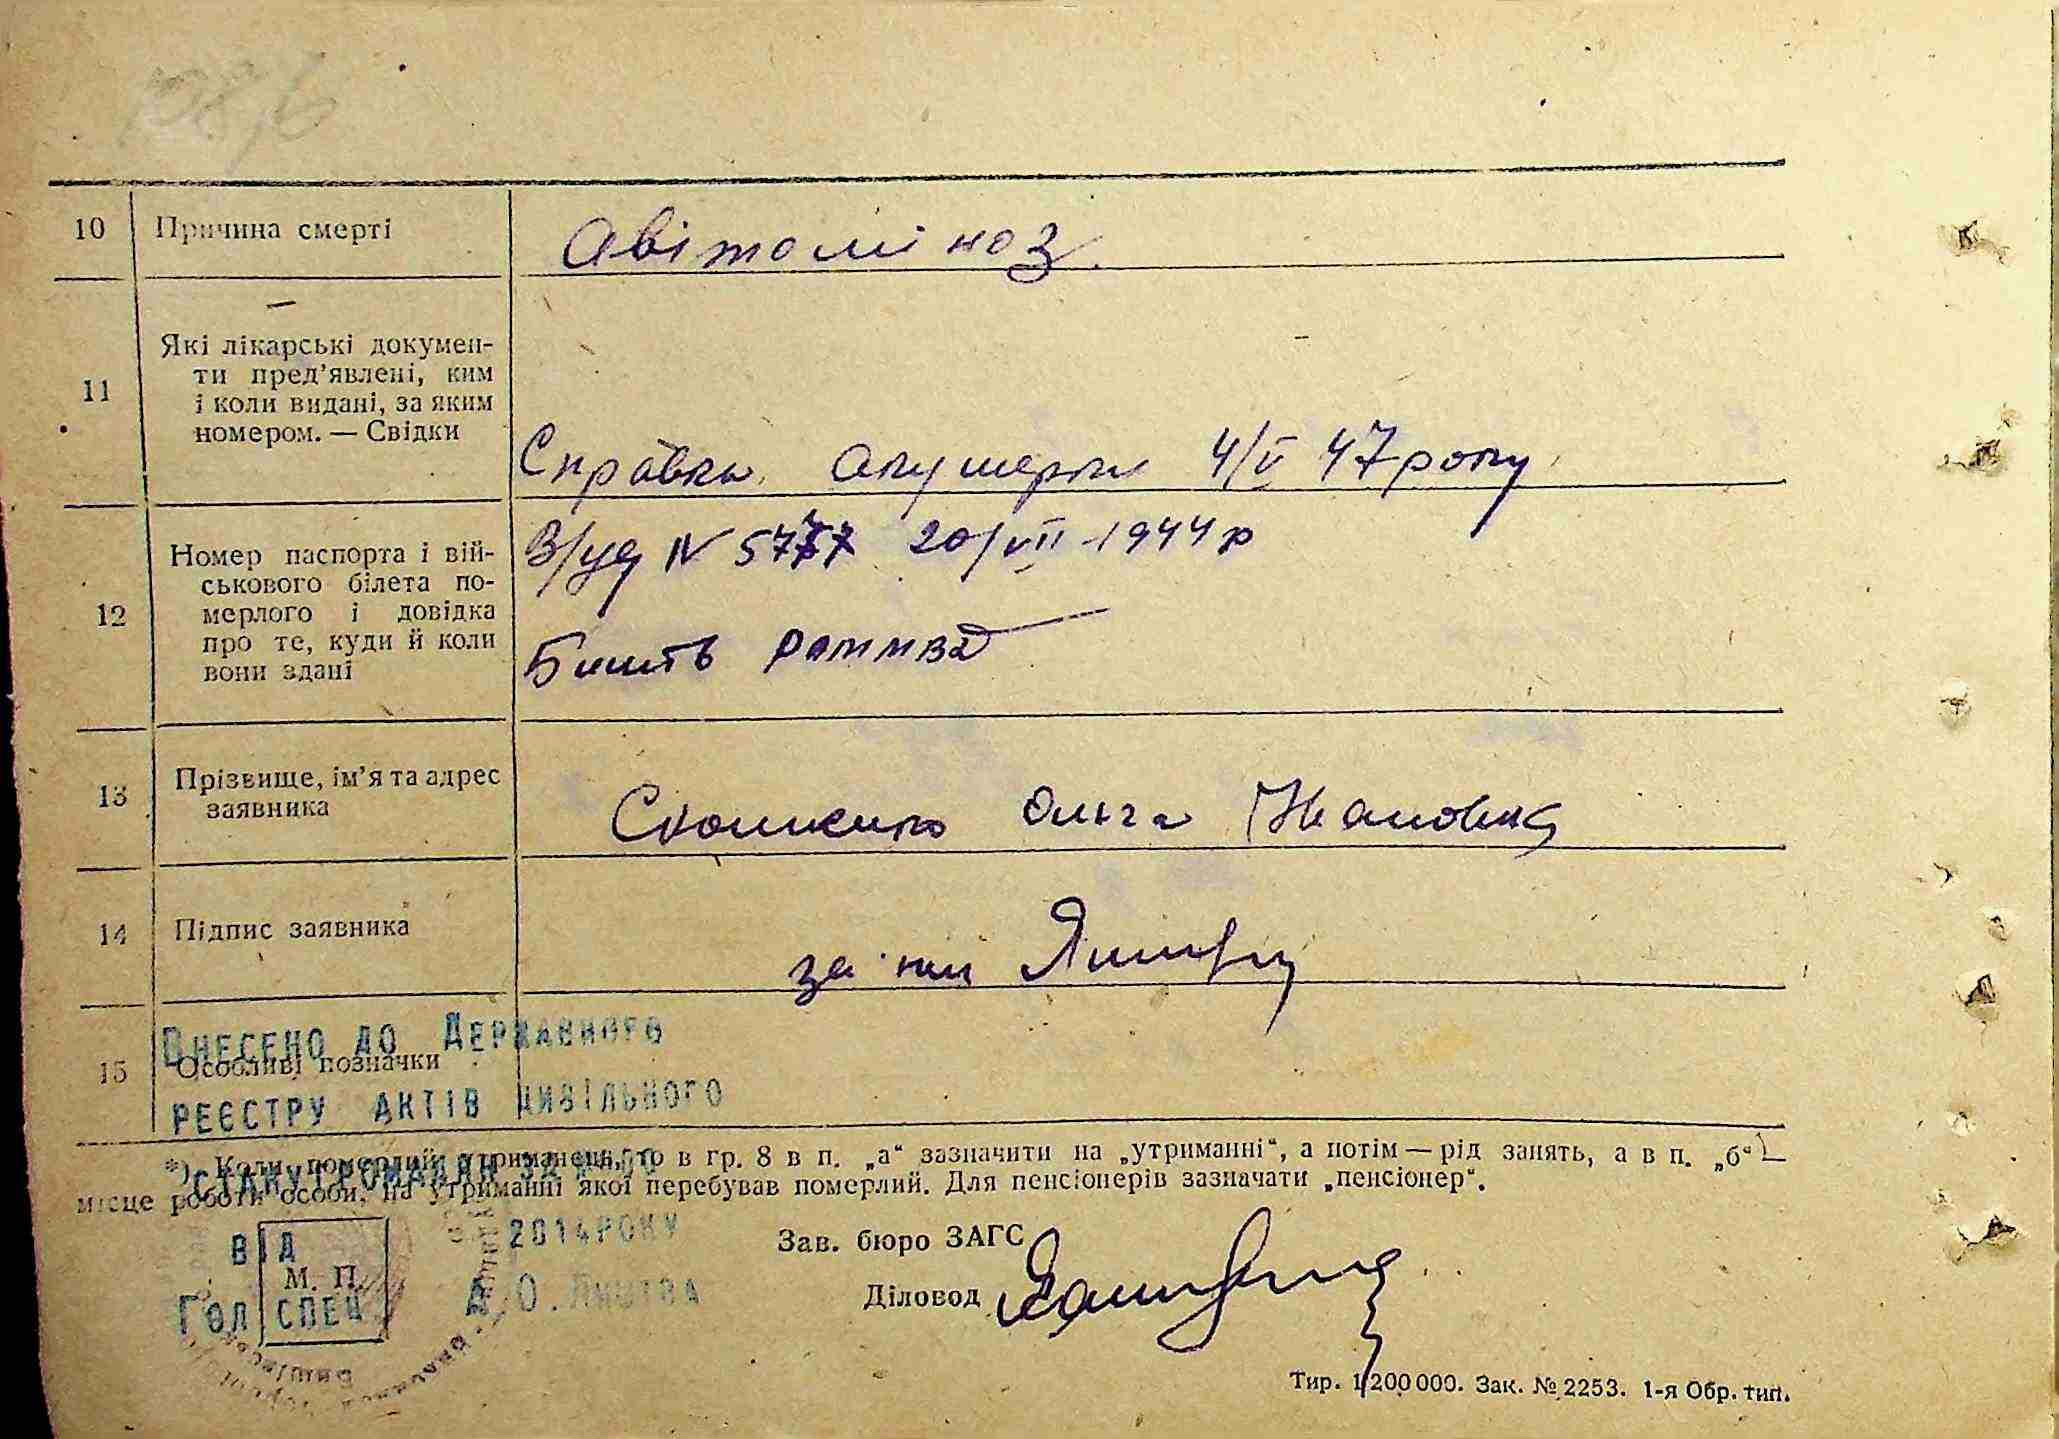 10 Причина смерті Авітоміноз.
11 Які лікарські докумен-
ти пред'явлені, ким
і коли видані, за яким
номером. — Свідки
Справка акушерки 4/V 47 року
12 Номер паспорта і вій-
ськового білета по-
мерлого і довідка
про те, куди й коли
вони здані
В/уд № 20/VII-1944 р
13 Прізвище, ім'я та адрес
заявника
Ольга Івановна
14 Підпис заявника
за
15 Особливі позначки
Внесено до Державного
реєстру актів цивільного
стану громадян за
*) Коли померлий утриманець, то в гр. 8 в п. „а“ зазначити на „утриманні“, а потім — рід занять, а в п. „б“ —
місце роботи особи, на утриманні якої перебував померлий. Для пенсіонерів зазначати „пенсіонер“.
від 2014 року
М. П.
Гол спец
Зав. бюро ЗАГС
Діловод
Тир. 1200000. Зак. № 2253. 1-я Обр. тип.